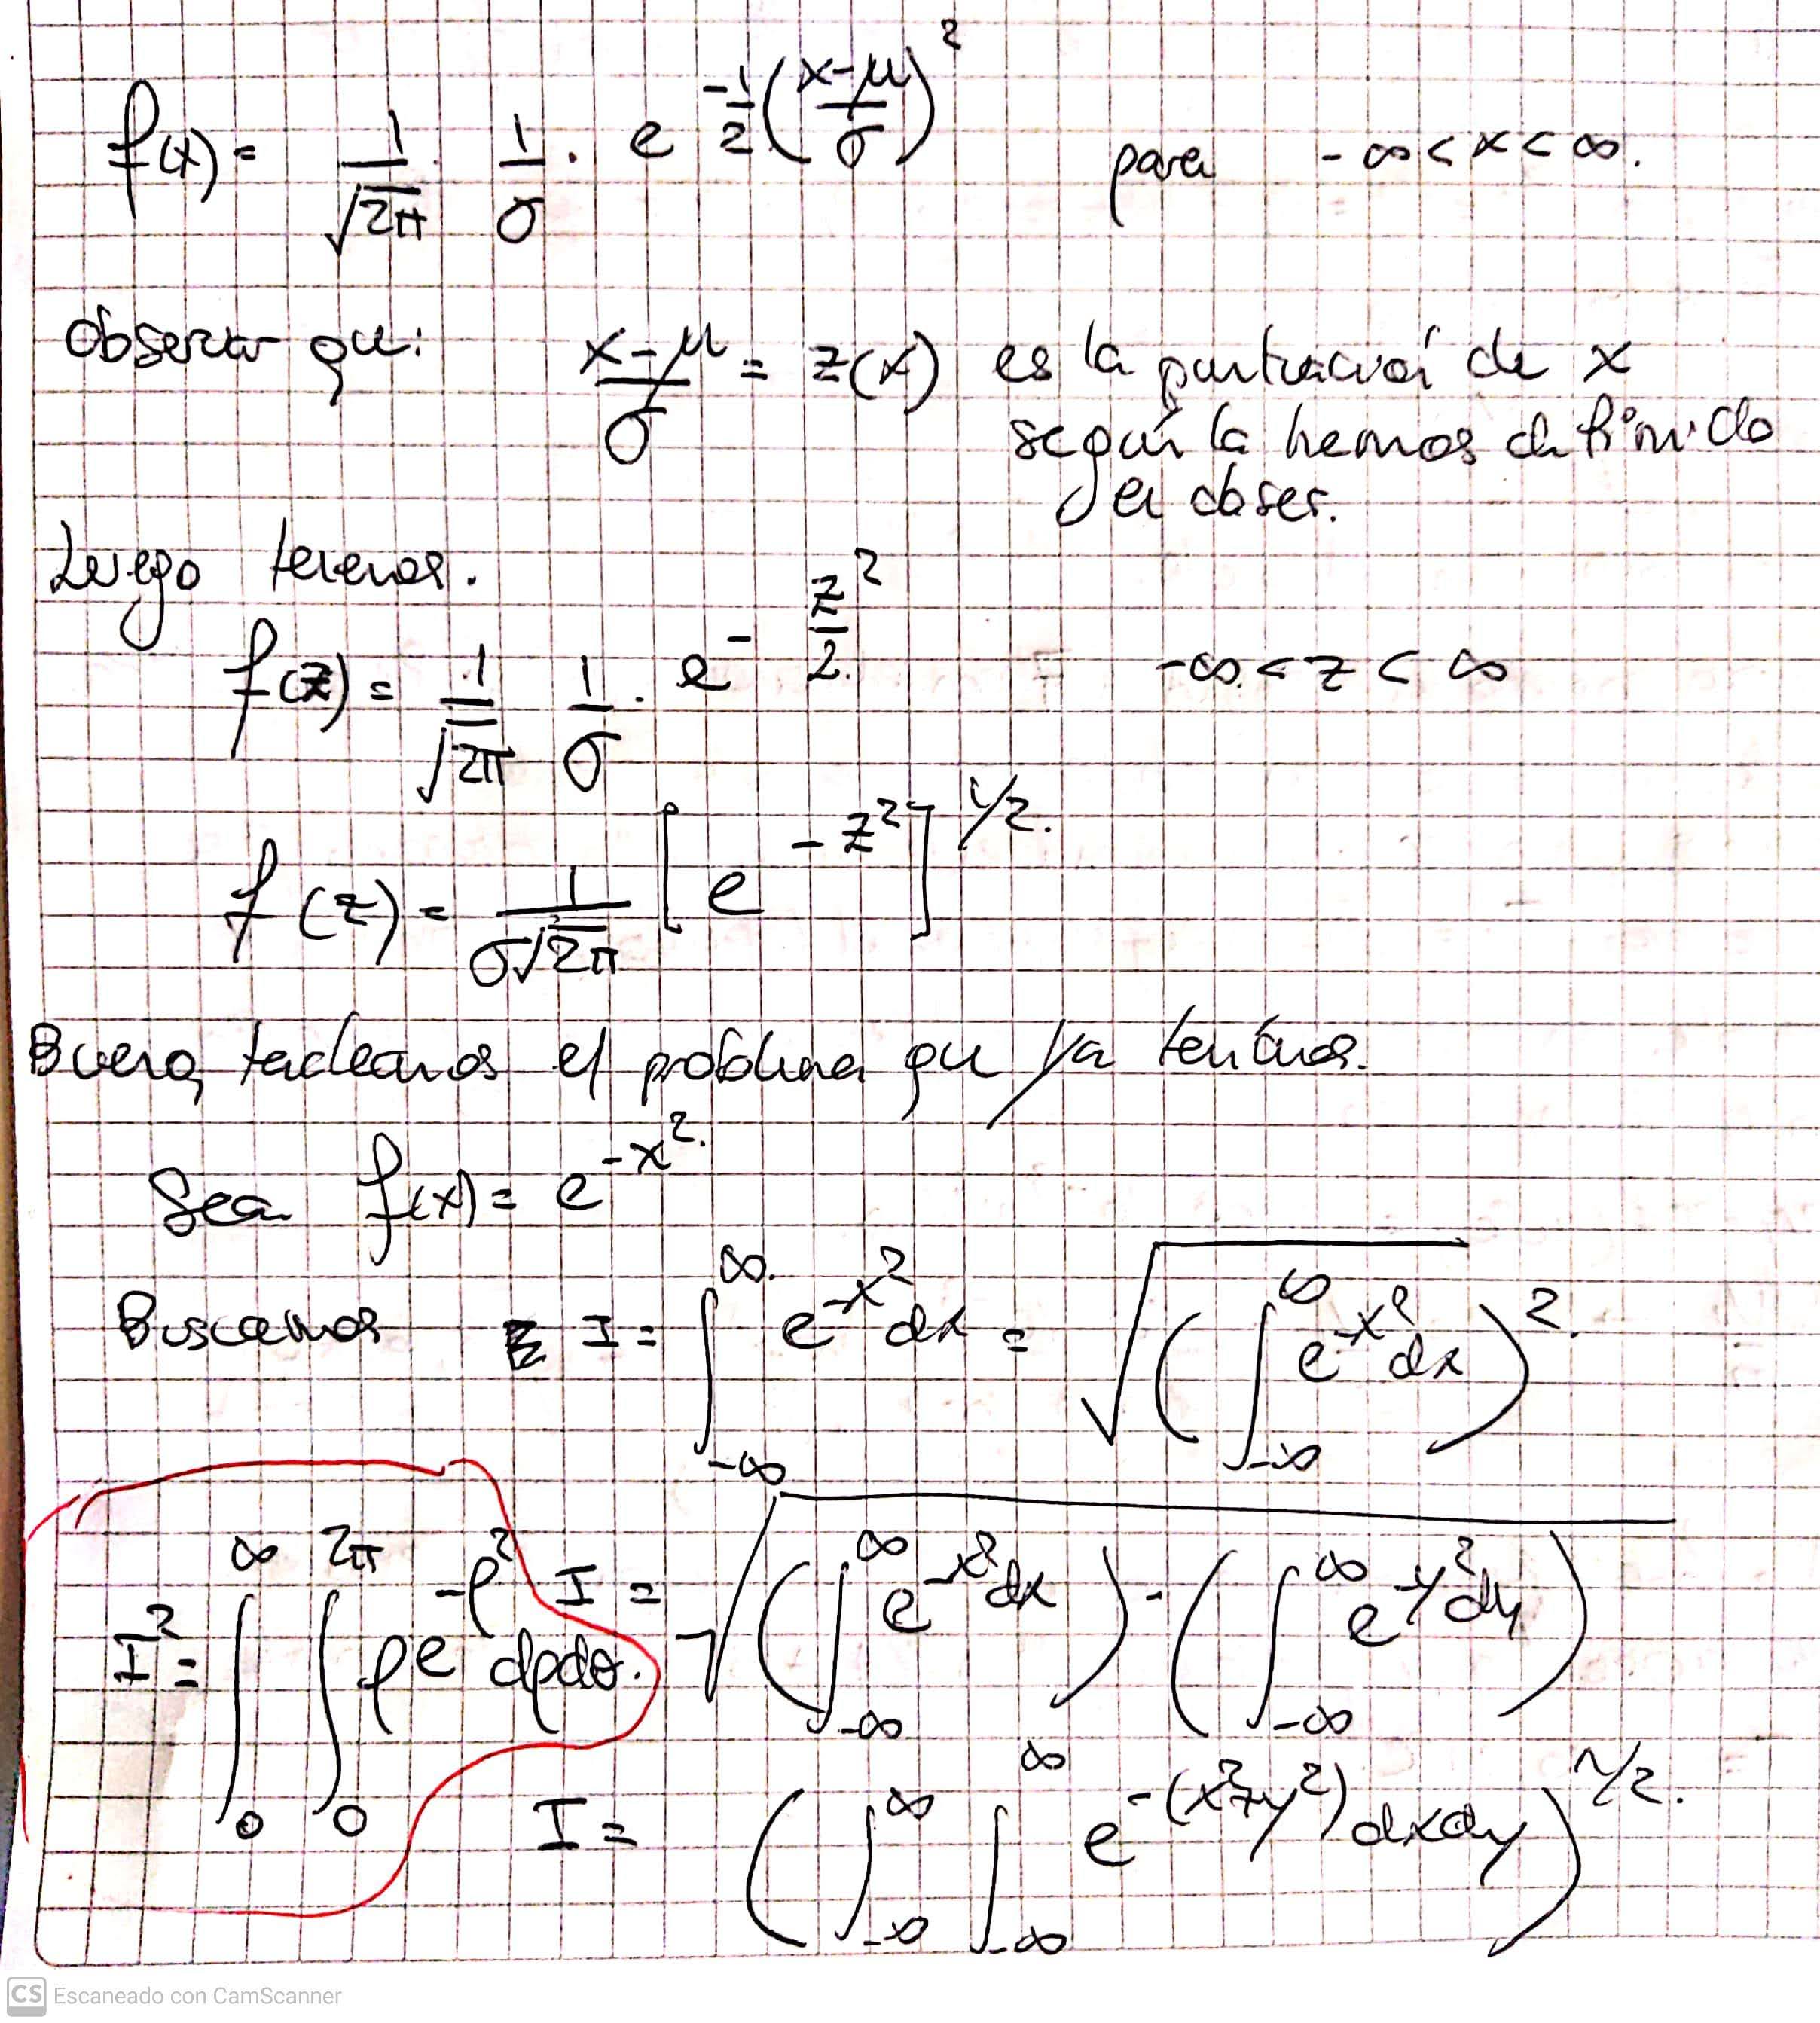 f(x) = 1/√2π · 1/σ · e^(-1/2 (x-μ/σ)^2) para -∞ < x < ∞.
Observar que: x-μ/σ = z(x) es la puntuación de x
según la hemos definido
en obser.
Luego tenemos.
f(z) = 1/√2π 1/σ · e^(-z^2/2.) -∞ < z < ∞
f(z) = 1/σ√2π [e^(-z^2)]^(1/2).
Bueno, el problema que ya teníamos.
Sea f(x) = e^(-x^2).
Buscamos I = ∫_-∞^∞ e^(-x^2) dx = √(∫_-∞^∞ e^(-x^2) dx)^2.
I = √(∫_-∞^∞ e^(-x^2) dx) · (∫_-∞^∞ e^(-y^2) dy)
I^2 = ∫_0^∞ ∫_0^2π ρe^(-ρ^2) dρdθ.
I = (∫_-∞^∞ ∫_-∞^∞ e^(-(x^2+y^2)) dxdy)^(1/2).
CS Escaneado con CamScanner